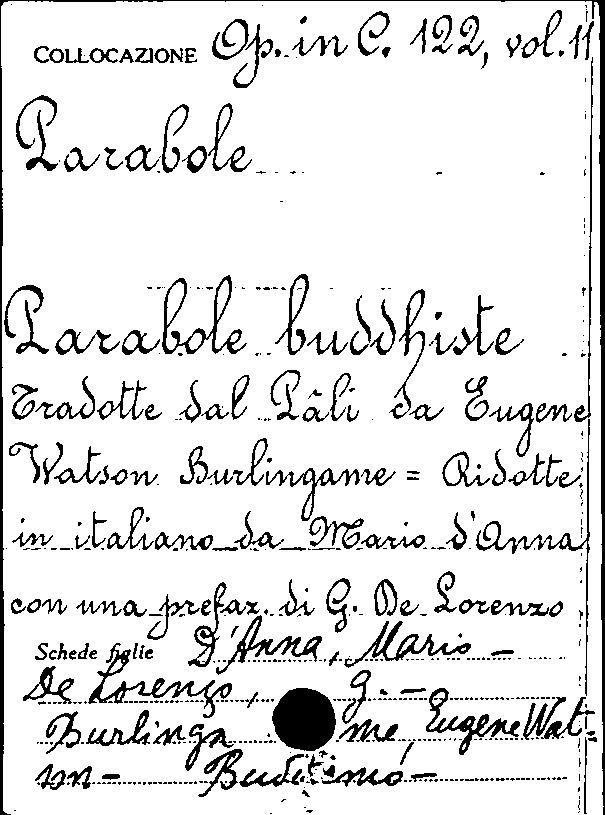 COLLOCAZIONE Op. in C. 122, vol. 11
Parabole
Parabole buddhiste
Tradotte dal Pâli da Eugene
Watson Burlingame = Ridotte
in italiano da Mario d'Anna
con una prefaz. di G. De Lorenzo
Schede figlie D'Anna, Mario –
De Lorenzo, G. –
Burlinga me, Eugene Wat=
son – Buddismo –